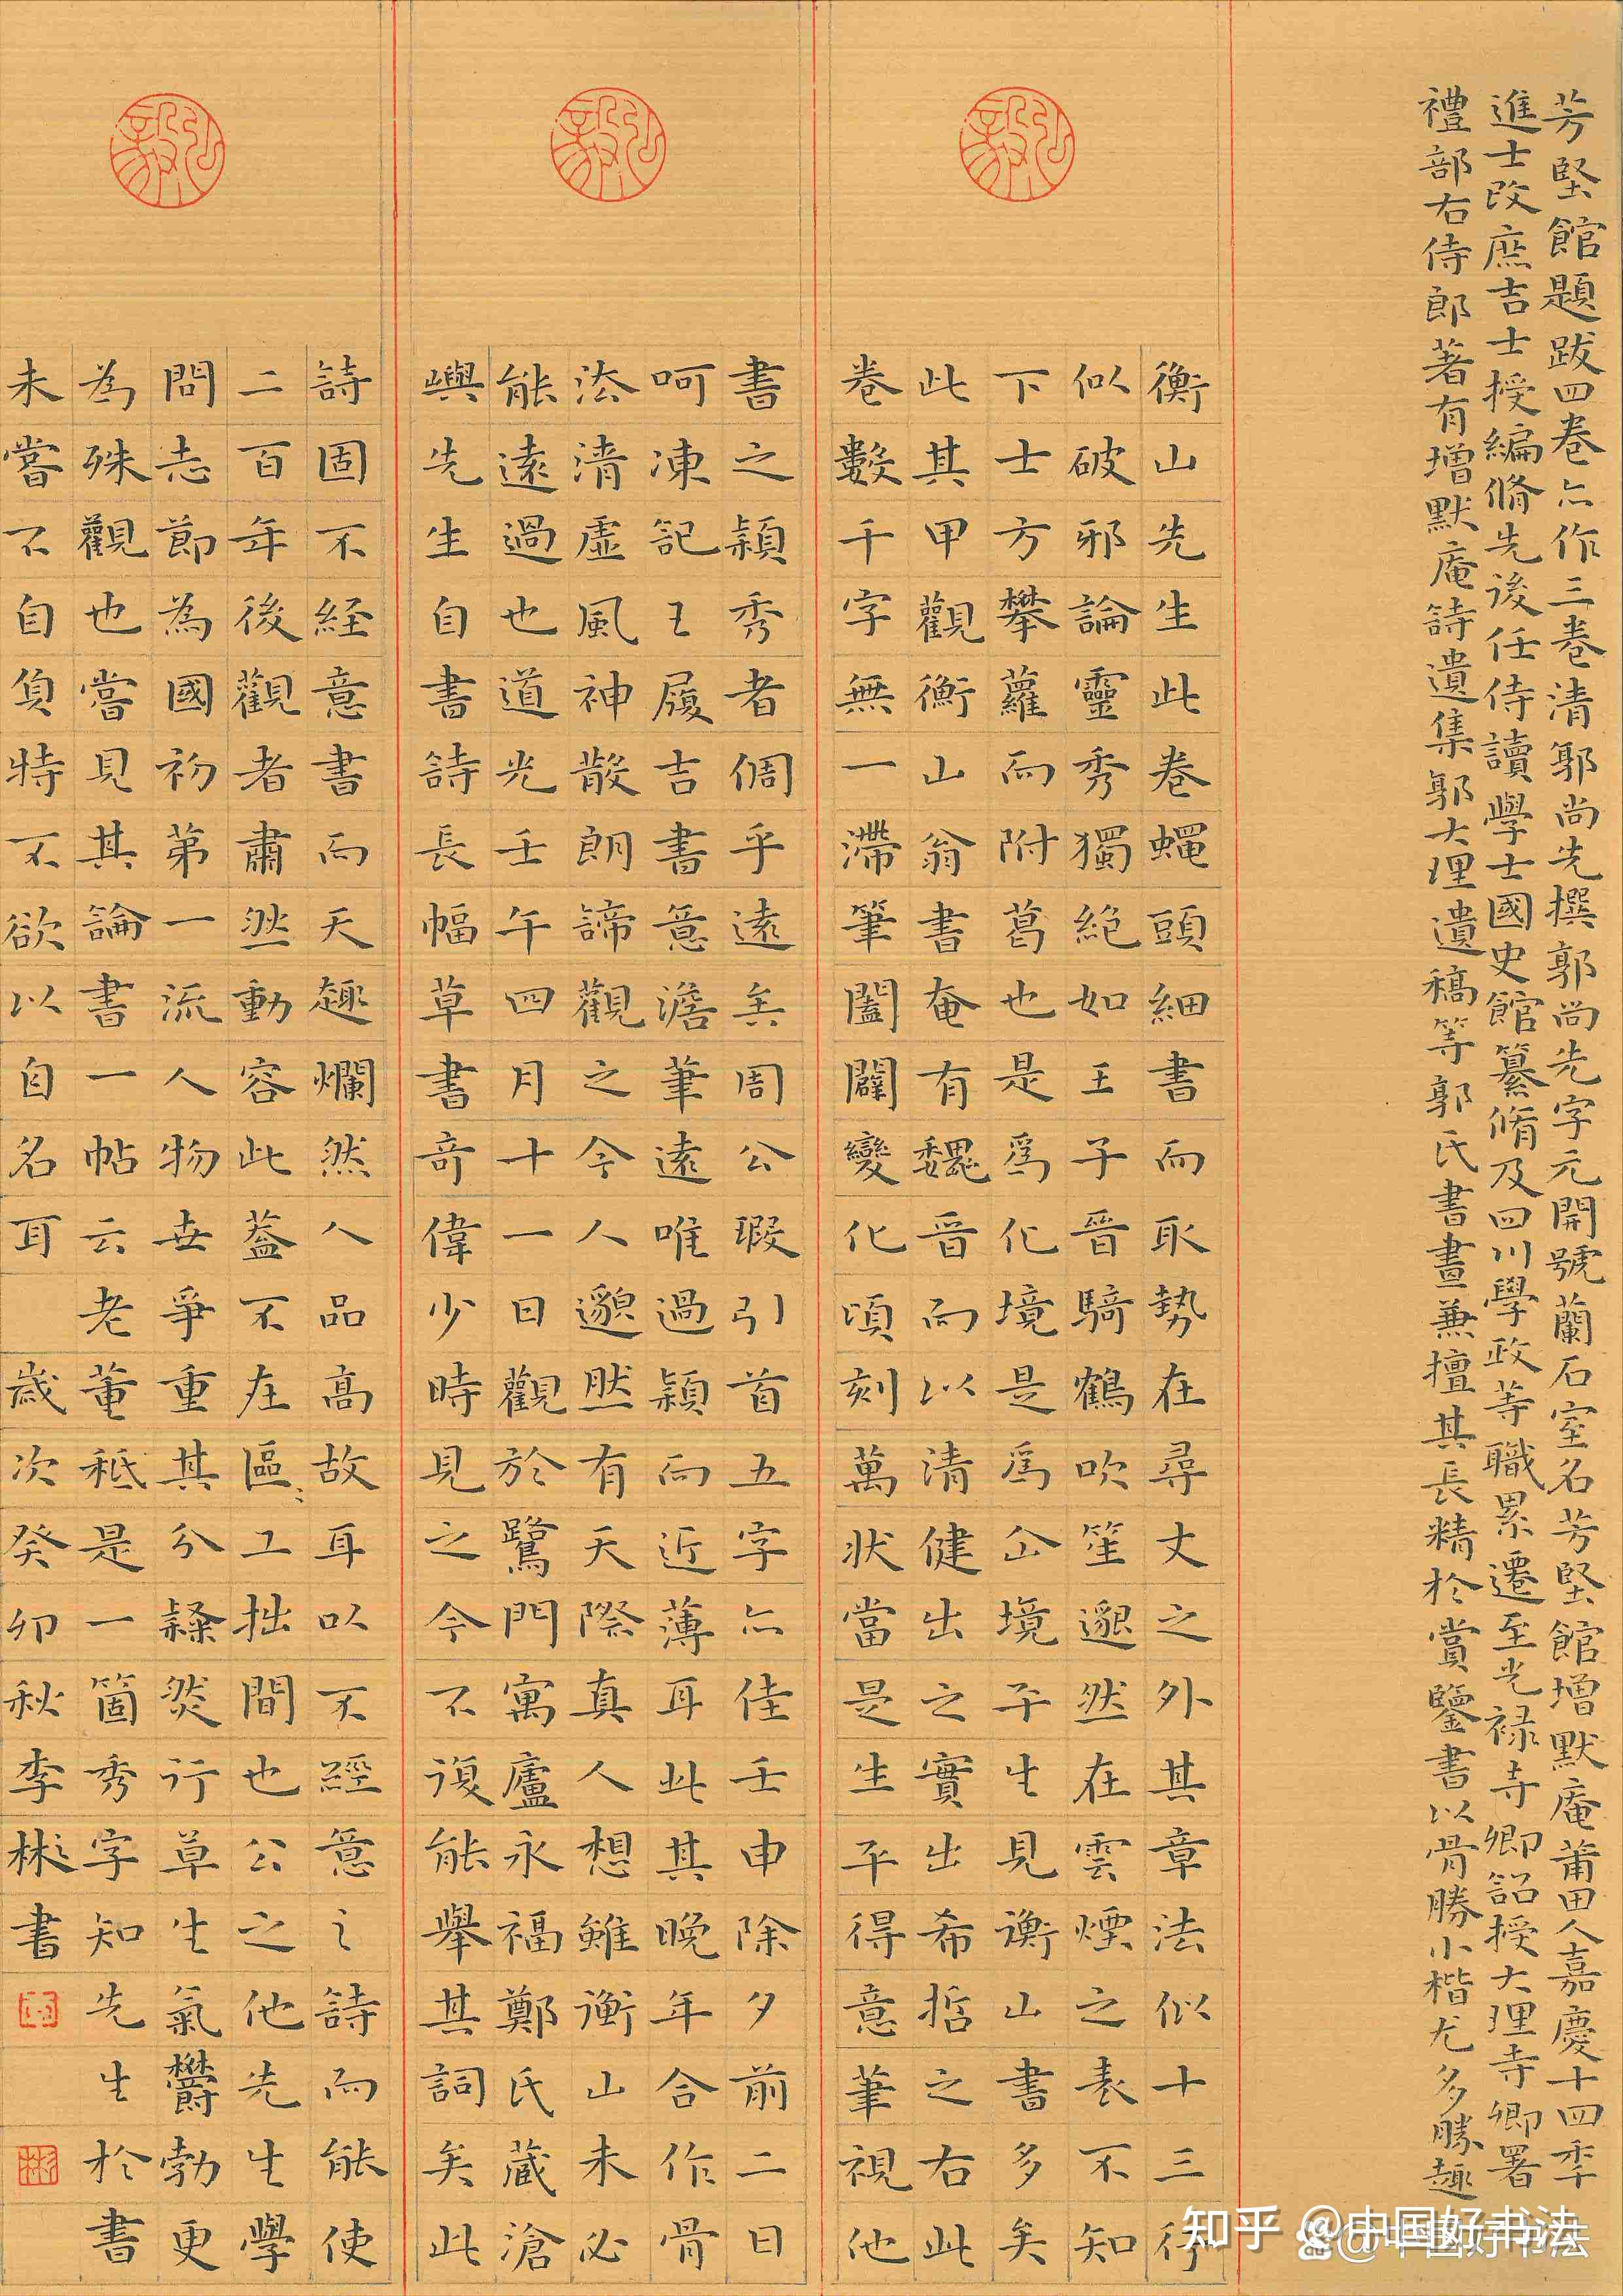 芳堅館題跋四卷亦作三卷清郭尚先撰郭尚先字元開號蘭石室名芳堅館增默庵莆田人嘉慶十四年
進士改庶吉士授編脩先後任侍讀學士國史館纂脩及四川學政等職累遷至光祿寺卿詔授大理寺卿署
禮部右侍郎著有增默庵詩遺集郭大理遺稿等郭氏書畫兼擅其長精於賞鑒書以骨勝小楷尤多勝趣
衡山先生此卷蠅頭細書而取勢在尋丈之外其章法似十三行
似破邪論靈秀獨絕如王子晉騎鶴吹笙邈然在雲煙之表不知
下士方攀蘿而附葛也是為化境是為仚境平生見衡山書多矣
此其甲觀衡山翁書奄有魏晉而以清健出之實出希哲之右此
卷數千字無一滯筆闔闢變化頃刻萬狀當是生平得意筆視他
書之穎秀者倜乎遠矣周公瑕引首五字亦佳壬申除夕前二日
呵凍記王履吉書意澹筆遠唯過穎而近薄耳此其晚年合作骨
法清虛風神散朗諦觀之今人邈然有天際真人想雖衡山未必
能遠過也道光壬午四月十一日觀於鷺門寓廬永福鄭氏藏滄
嶼先生自書詩長幅草書奇偉少時見之今不復能舉其詞矣此
詩固不経意書而天趣爛然人品高故耳以不經意之詩而能使
二百年後觀者肅然動容此蓋不在區〻工拙間也公之他先生學
問志節為國初第一流人物世爭重其分隸然行草生氣鬱勃更
為殊觀也嘗見其論書一帖云老董秪是一箇秀字知先生於書
未嘗不自負特不欲以自名耳 歲次癸卯秋李彬書
彬
知乎 @中国好书法
@中国好书法